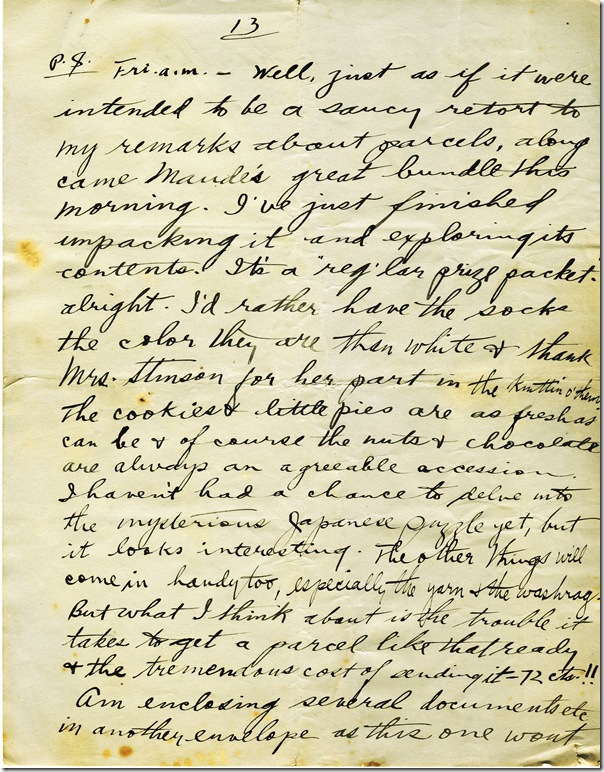 13
P.S. Fri. a.m. – Well, just as if it were
intended to be a saucy retort to
my remarks about parcels, along
came Maude's great bundle this
morning. I've just finished
unpacking it and exploring its
contents. It's a "reg'lar prize packet."
alright. I'd rather have the socks
the color they are than white & thank
Mrs. Stinson for her part in the knittin o' them.
The cookies & little pies are as fresh as
can be & of course the nuts & chocolate
are always an agreeable accession.
I haven't had a chance to delve into
the mysterious Japanese puzzle yet, but
it looks interesting. The other things will
come in handy too, especially the yarn & the washrag.
But what I think about is the trouble it
takes to get a parcel like that ready
& the tremendous cost of sending it – 72 cts.!!
Am enclosing several documents etc.
in another envelope as this one won't